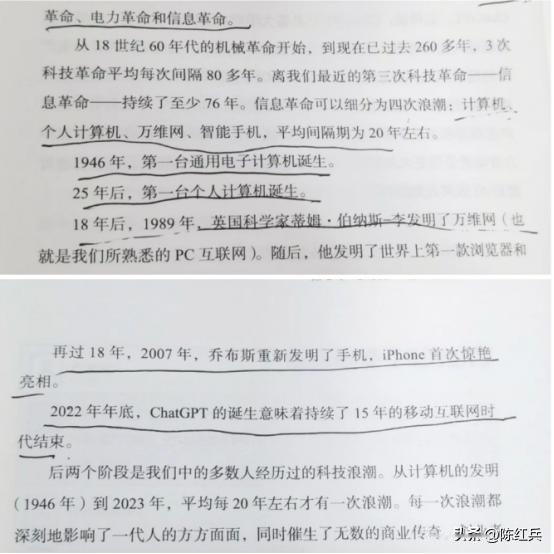 革命、电力革命和信息革命。
从 18 世纪 60 年代的机械革命开始，到现在已过去 260 多年，3 次
科技革命平均每次间隔 80 多年。离我们最近的第三次科技革命——信
息革命——持续了至少 76 年。信息革命可以细分为四次浪潮：计算机、
个人计算机、万维网、智能手机，平均间隔期为 20 年左右。
1946 年，第一台通用电子计算机诞生。
25 年后，第一台个人计算机诞生。
18 年后，1989 年，英国科学家蒂姆·伯纳斯-李发明了万维网（也
就是我们所熟悉的 PC 互联网）。随后，他发明了世界上第一款浏览器和
再过 18 年，2007 年，乔布斯重新发明了手机，iPhone 首次惊艳
亮相。
2022 年年底，ChatGPT 的诞生意味着持续了 15 年的移动互联网时
代结束。
后两个阶段是我们中的多数人经历过的科技浪潮。从计算机的发明
（1946 年）到 2023 年，平均每 20 年左右才有一次浪潮。每一次浪潮都
深刻地影响了一代人的方方面面，同时催生了无数的商业传奇
头条 @陈红兵